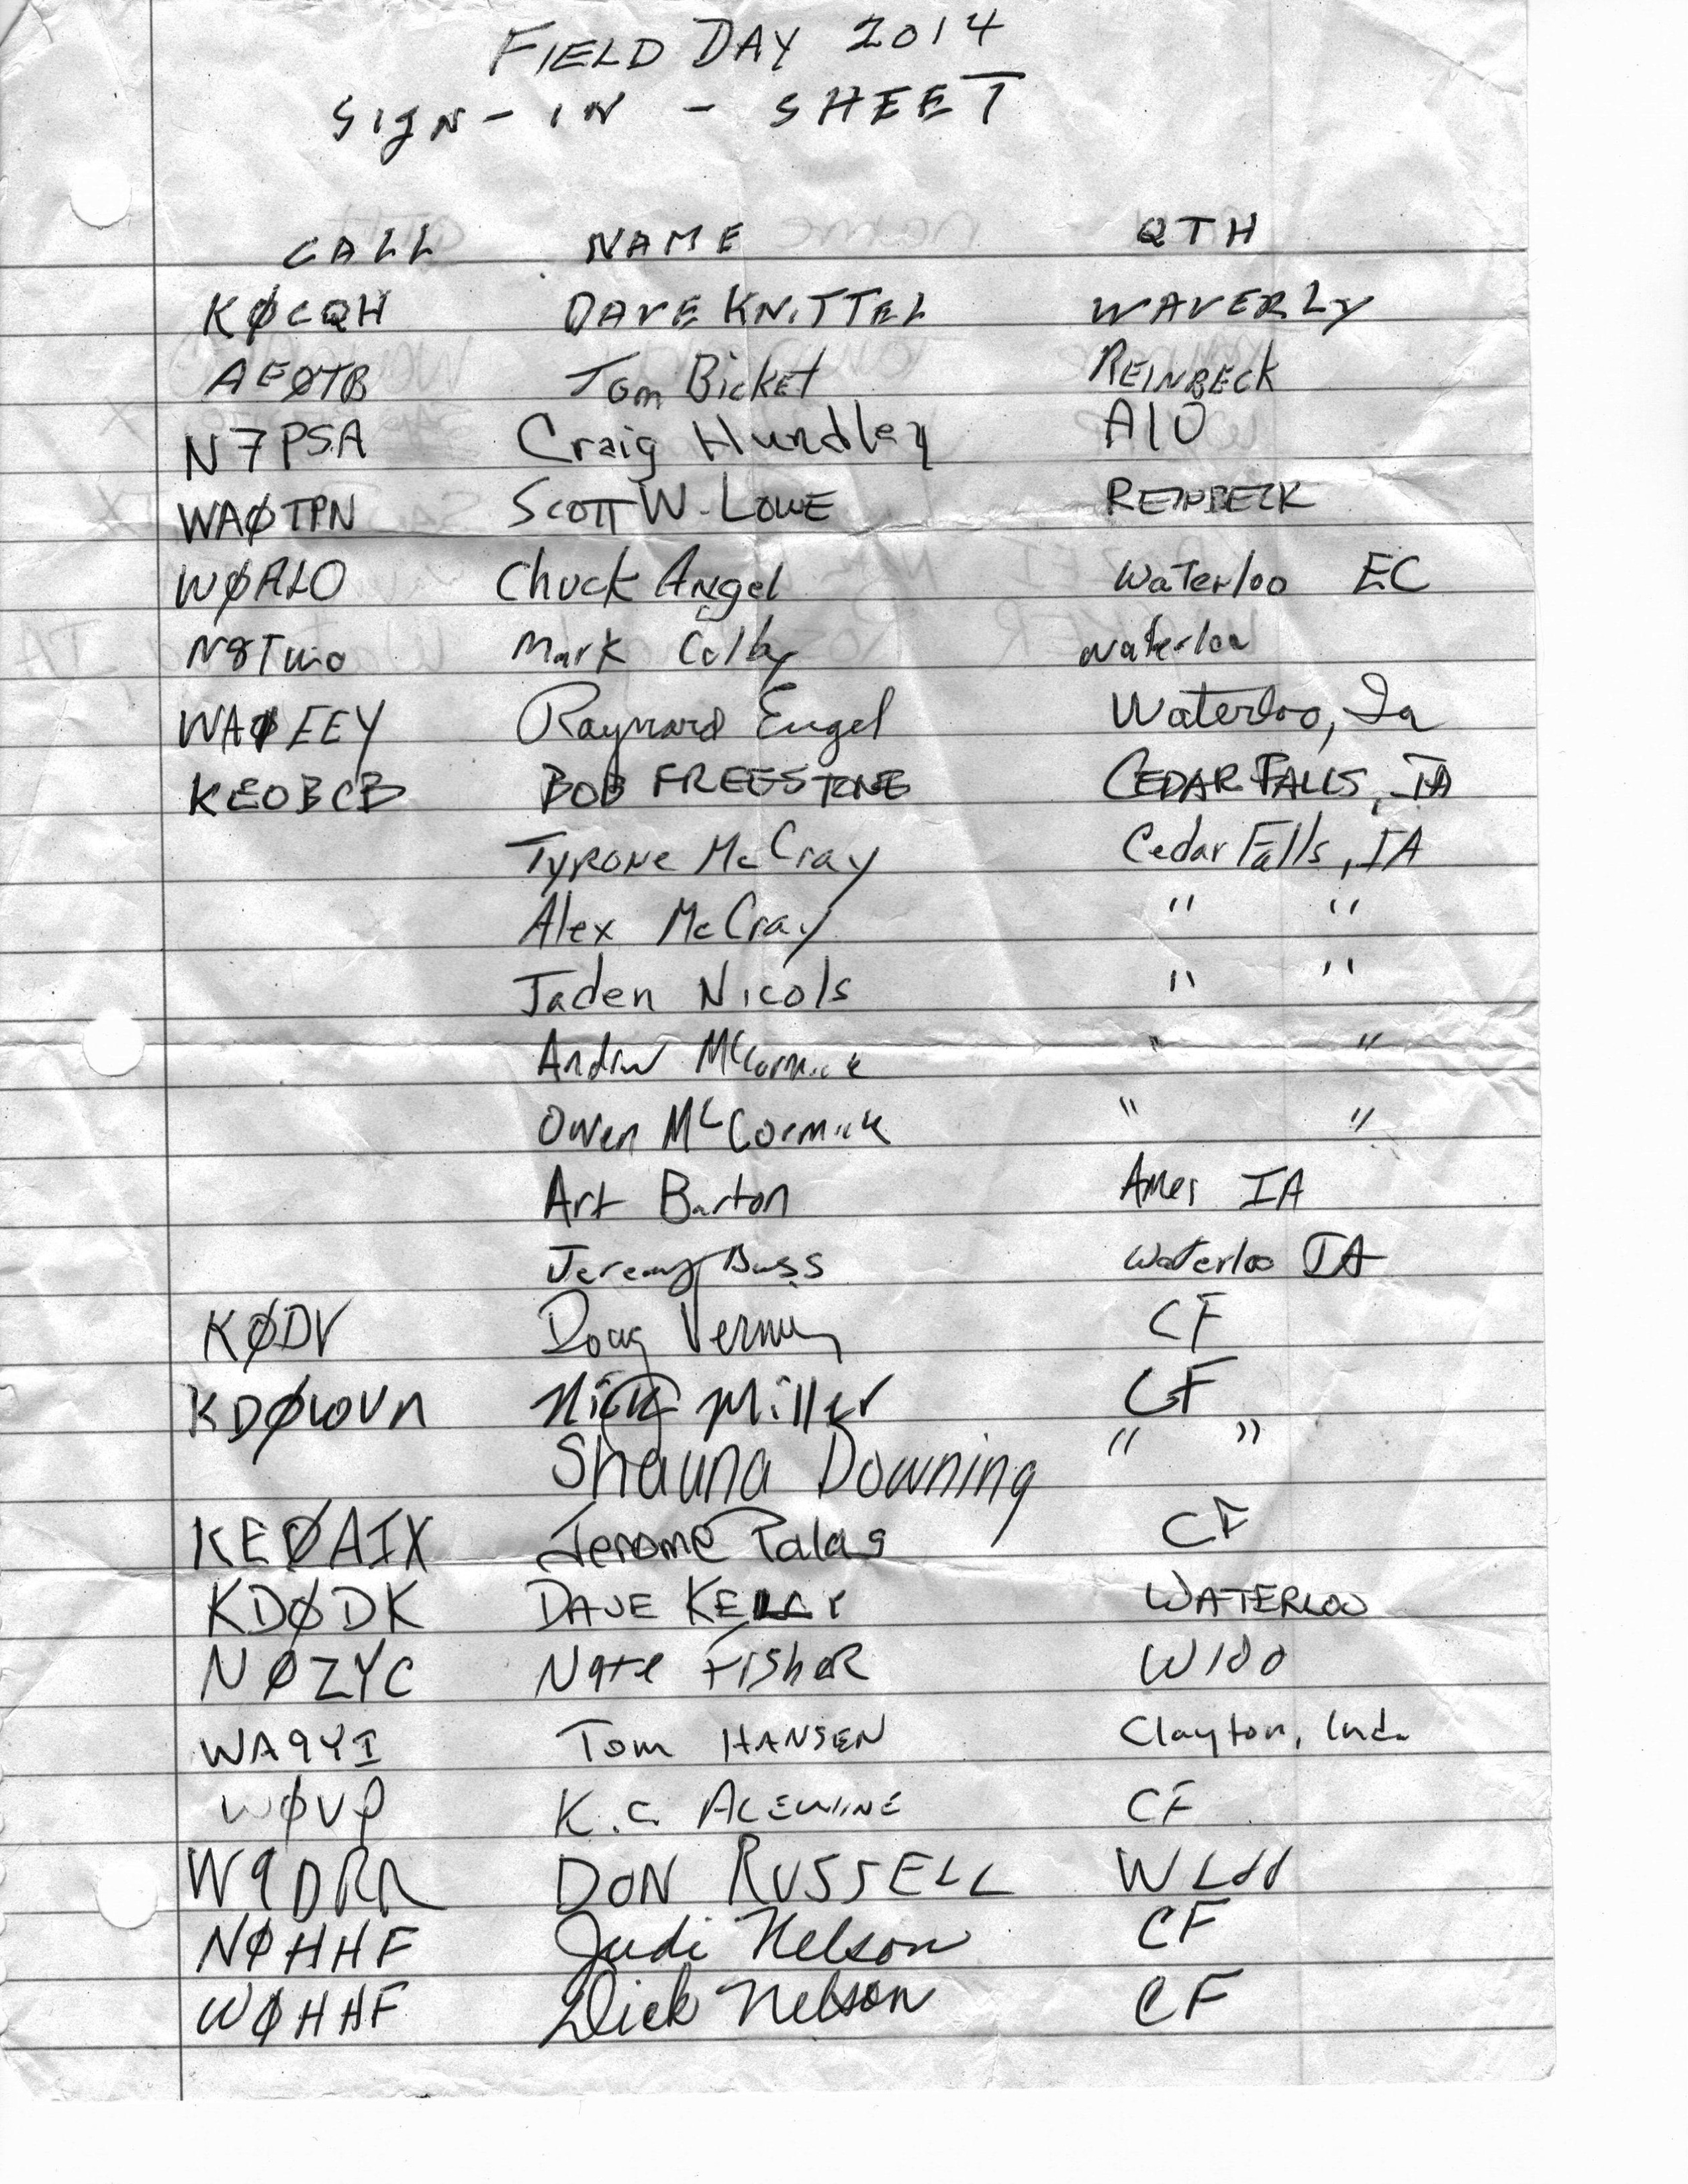 FIELD DAY 2014
SIGN-IN - SHEET
CALL NAME QTH
KØCQH DAVE KNITTEL WAVERLY
AEØTB Tom Bicket REINBECK
N7PSA Craig Hundley A10
WAØTPN SCOTT W. LOWE REINBECK
WØALO Chuck Angel Waterloo EC
Mark Colby Waterloo
WAØEEY Raymard Engel Waterloo, Ia
KEOBCB BOB FREESTONE CEDAR FALLS, IA
TYRONE McCray Cedar Falls, IA
Alex McCray " "
Jaden Nicols " "
Andrw McCormick " "
Owen McCormick " "
Art Barton Ames IA
Jeremy Buss Waterloo IA
KØDV Doug CF
KDØWVN Nick Miller CF
Shauna Downing " "
KEØAIX Jerome Palas CF
KDØDK DAVE KELLY WATERLOO
NØZYC Nate FISHER Wloo
WA9YI Tom HANSEN Clayton, Ind.
WØVP K.C. ALEWINE CF
W9DRR DON RUSSELL
NØHHF Judi Nelson CF
WØHHF Dick Nelson CF